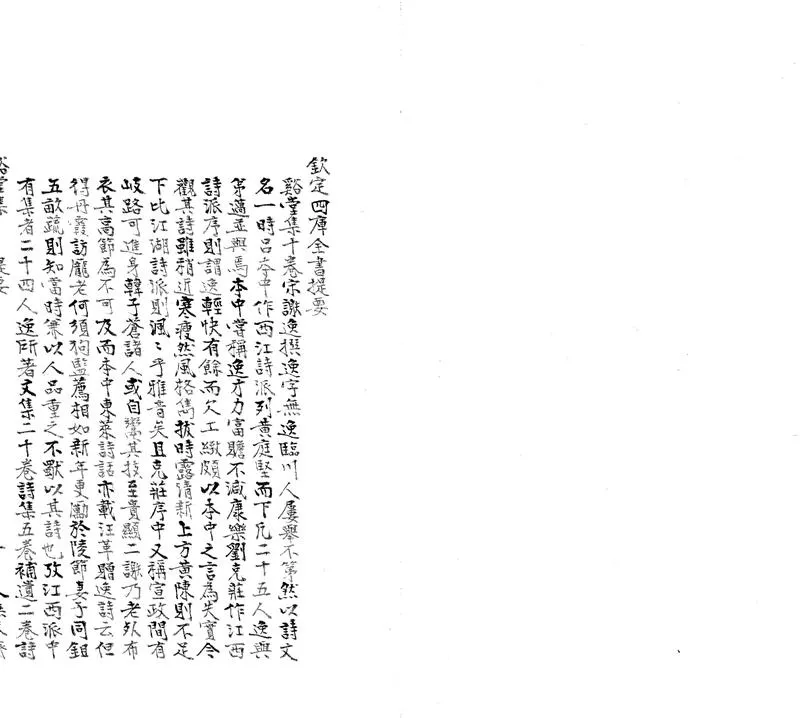 欽定四庫全書提要
谿堂集十卷宋謝逸撰逸字無逸臨川人屢舉不第然以詩文
名一時呂本中作西江詩派列黃庭堅而下凡二十五人逸與
第薖並與焉本中嘗稱逸才力富贍不減康樂劉克莊作江西
詩派序則謂逸輕快有餘而欠工緻頗以本中之言為失實今
觀其詩雖稍近寒瘦然風格雋拔時露清新上方黃陳則不足
下比江湖詩派則渢〻乎雅音矣且克莊序中又稱宣政間有
岐路可進身韓子蒼諸人或自鬻其技至貴顯二謝乃老死布
衣其高節為不可及而本中東萊詩話亦載汪革贈逸詩云但
得丹霞訪龐老何須狗監薦相如新年更勵於陵節妻子同鉏
五畝蔬則知當時兼以人品重之不獨以其詩也攷江西派中
有集者二十四人逸所著文集二十卷詩集五卷補遺二卷詩